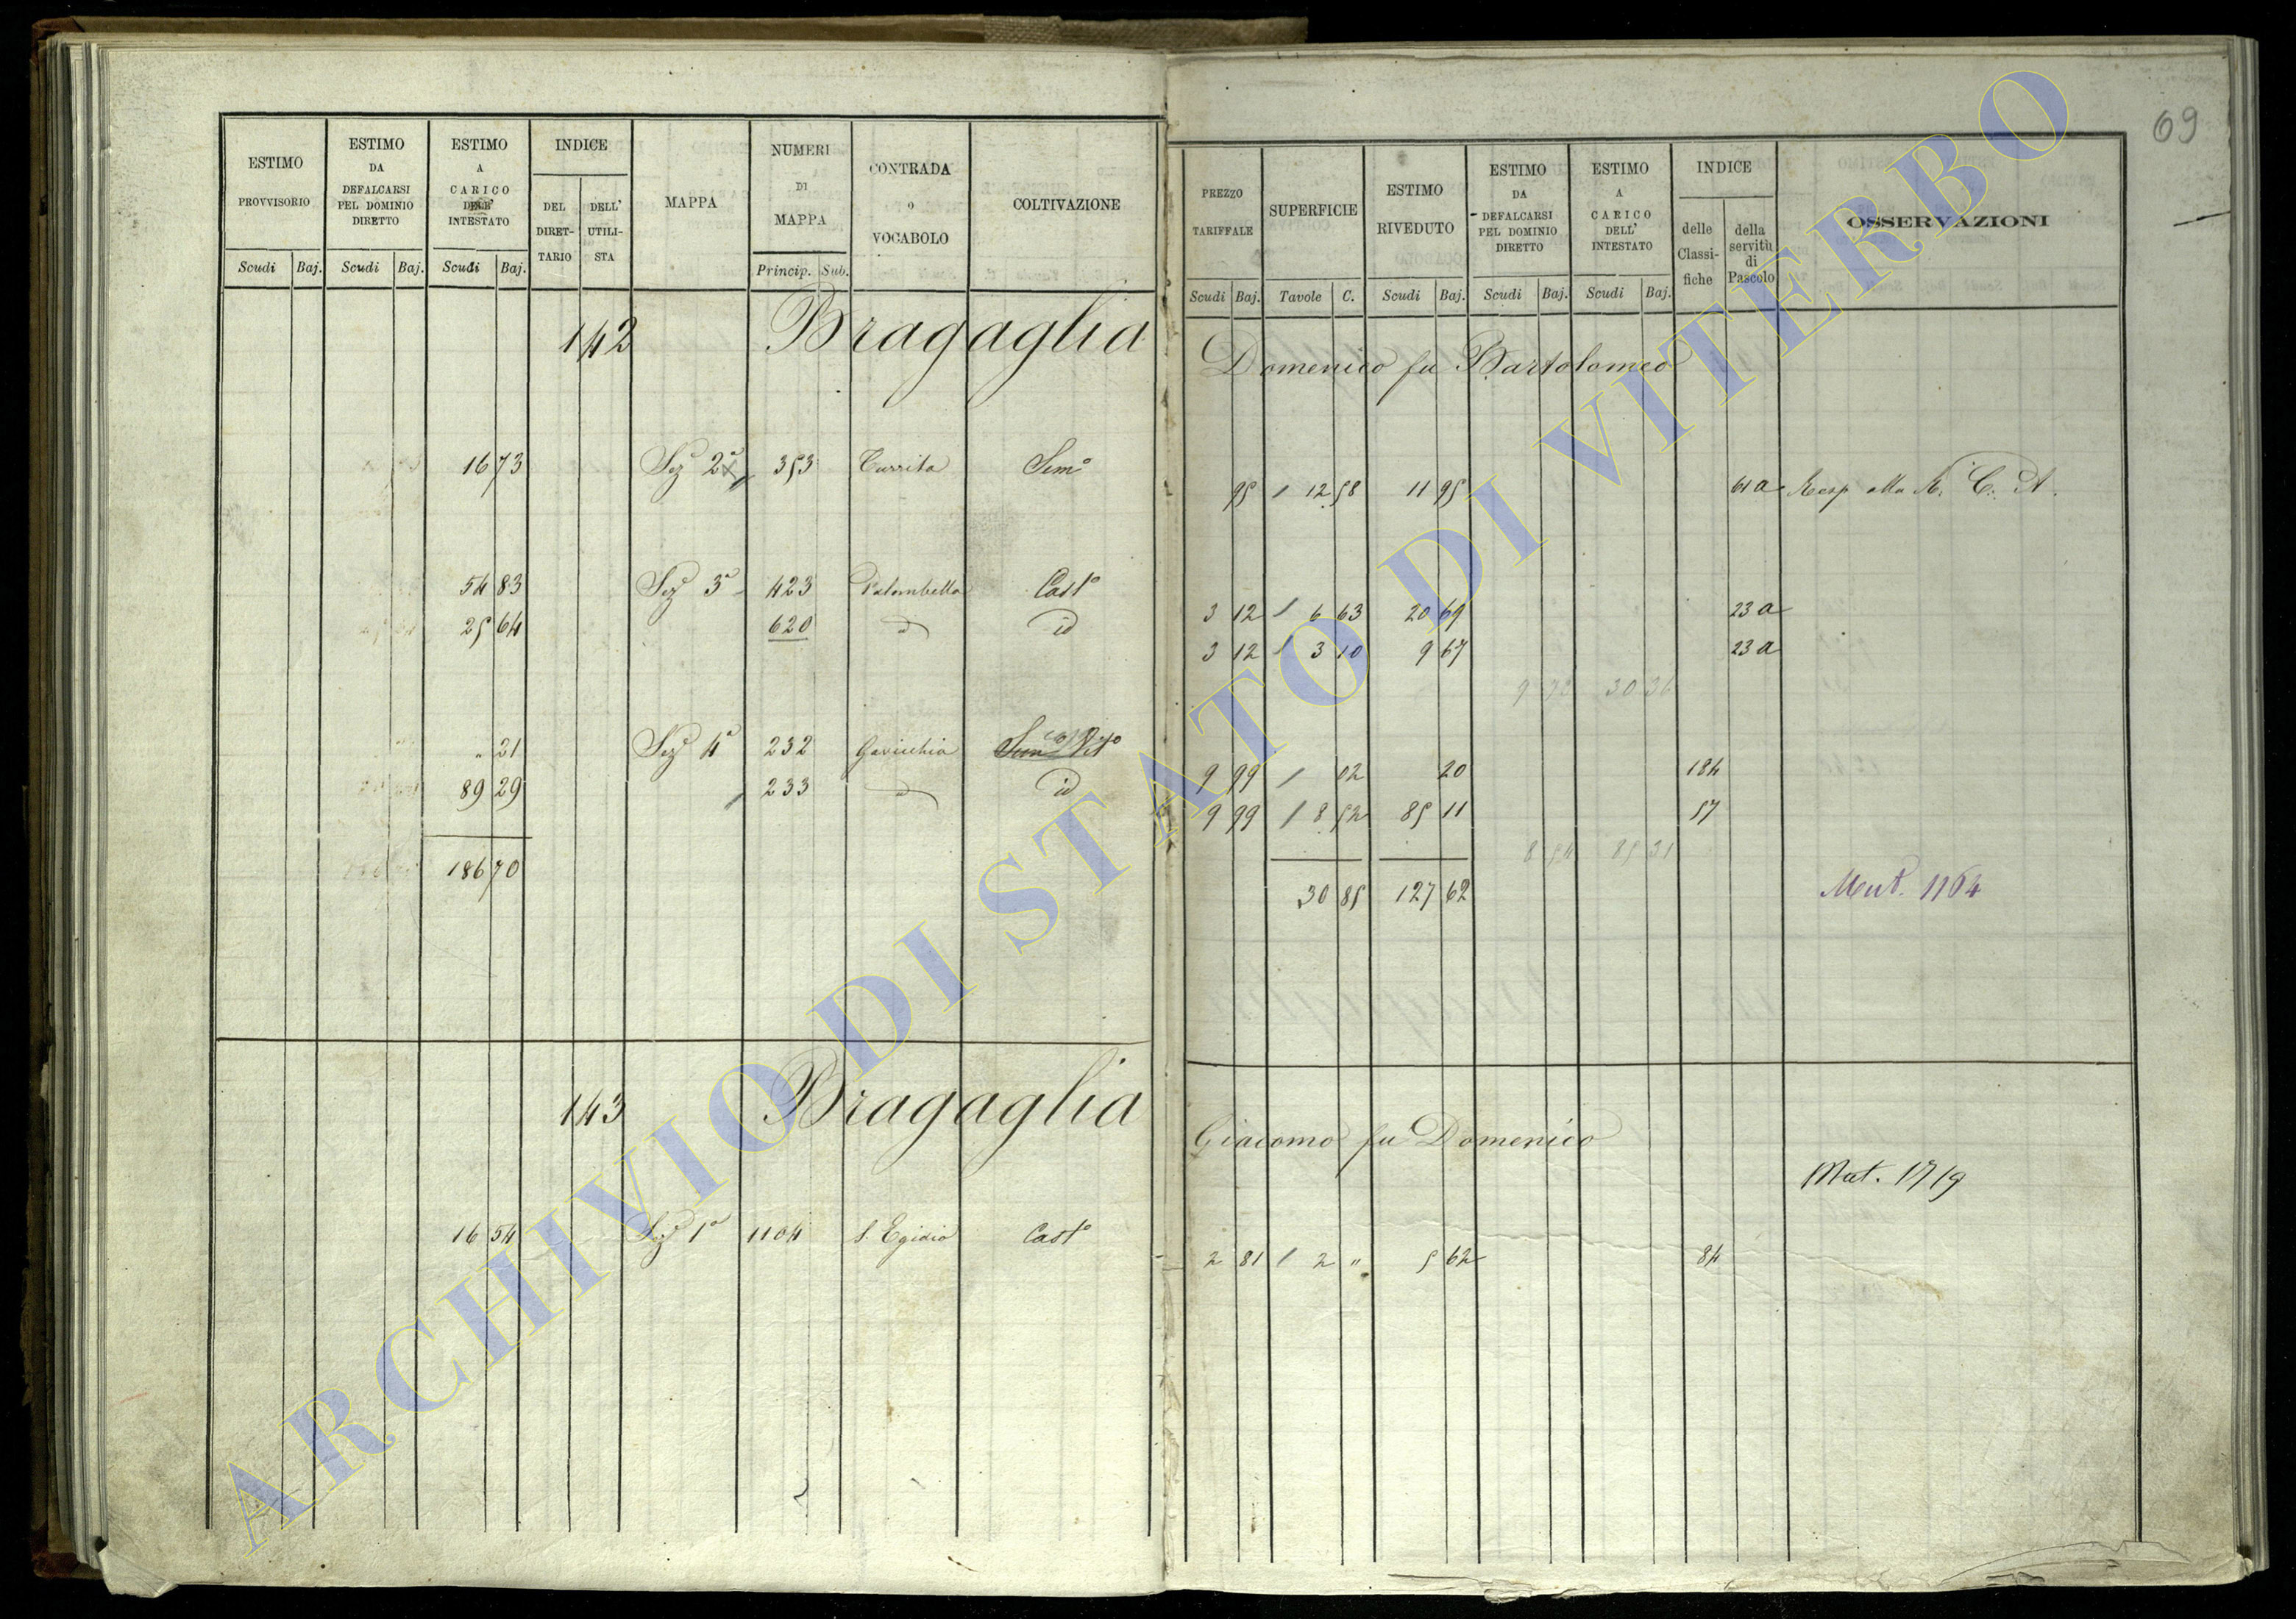 69
ESTIMO PROVVISORIO Scudi Baj.
ESTIMO DA DEFALCARSI PEL DOMINIO DIRETTO Scudi Baj.
ESTIMO A CARICO DELL' INTESTATO Scudi Baj.
INDICE DEL DIRET-TARIO DELL' UTILI-STA
MAPPA
NUMERI DI MAPPA Princip. Sub.
CONTRADA O VOCABOLO
COLTIVAZIONE
PREZZO TARIFFALE Scudi Baj.
SUPERFICIE Tavole C.
ESTIMO RIVEDUTO Scudi Baj.
ESTIMO DA DEFALCARSI PEL DOMINIO DIRETTO Scudi Baj.
ESTIMO A CARICO DELL' INTESTATO Scudi Baj.
INDICE delle Classi-fiche della servitù di Pascolo
OSSERVAZIONI
142 Bragaglia Domenico fu Bartolomeo
16 73 Sez. 2a 353 Turrita Semo 95 12 58 11 95 61 a Resp alla R. C. A.
54 83 Sez. 3a 423 Palombella Casto 3 12 6 63 20 69 23 a
25 64 620 " id 3 12 3 10 9 67 23 a
30 36
" 21 Sez. 4a 232 Gavicchia Vito 9 99 02 20 184
89 29 233 " id 9 99 8 52 85 11 57
8 54 85 31
186 70 30 85 127 62 Mut. 1164
143 Bragaglia Giacomo fu Domenico
Mat. 1719
16 54 Sez. 1a 1104 S. Egidio Casto 2 81 2 " 5 62 84
ARCHIVIO DI STATO DI VITERBO